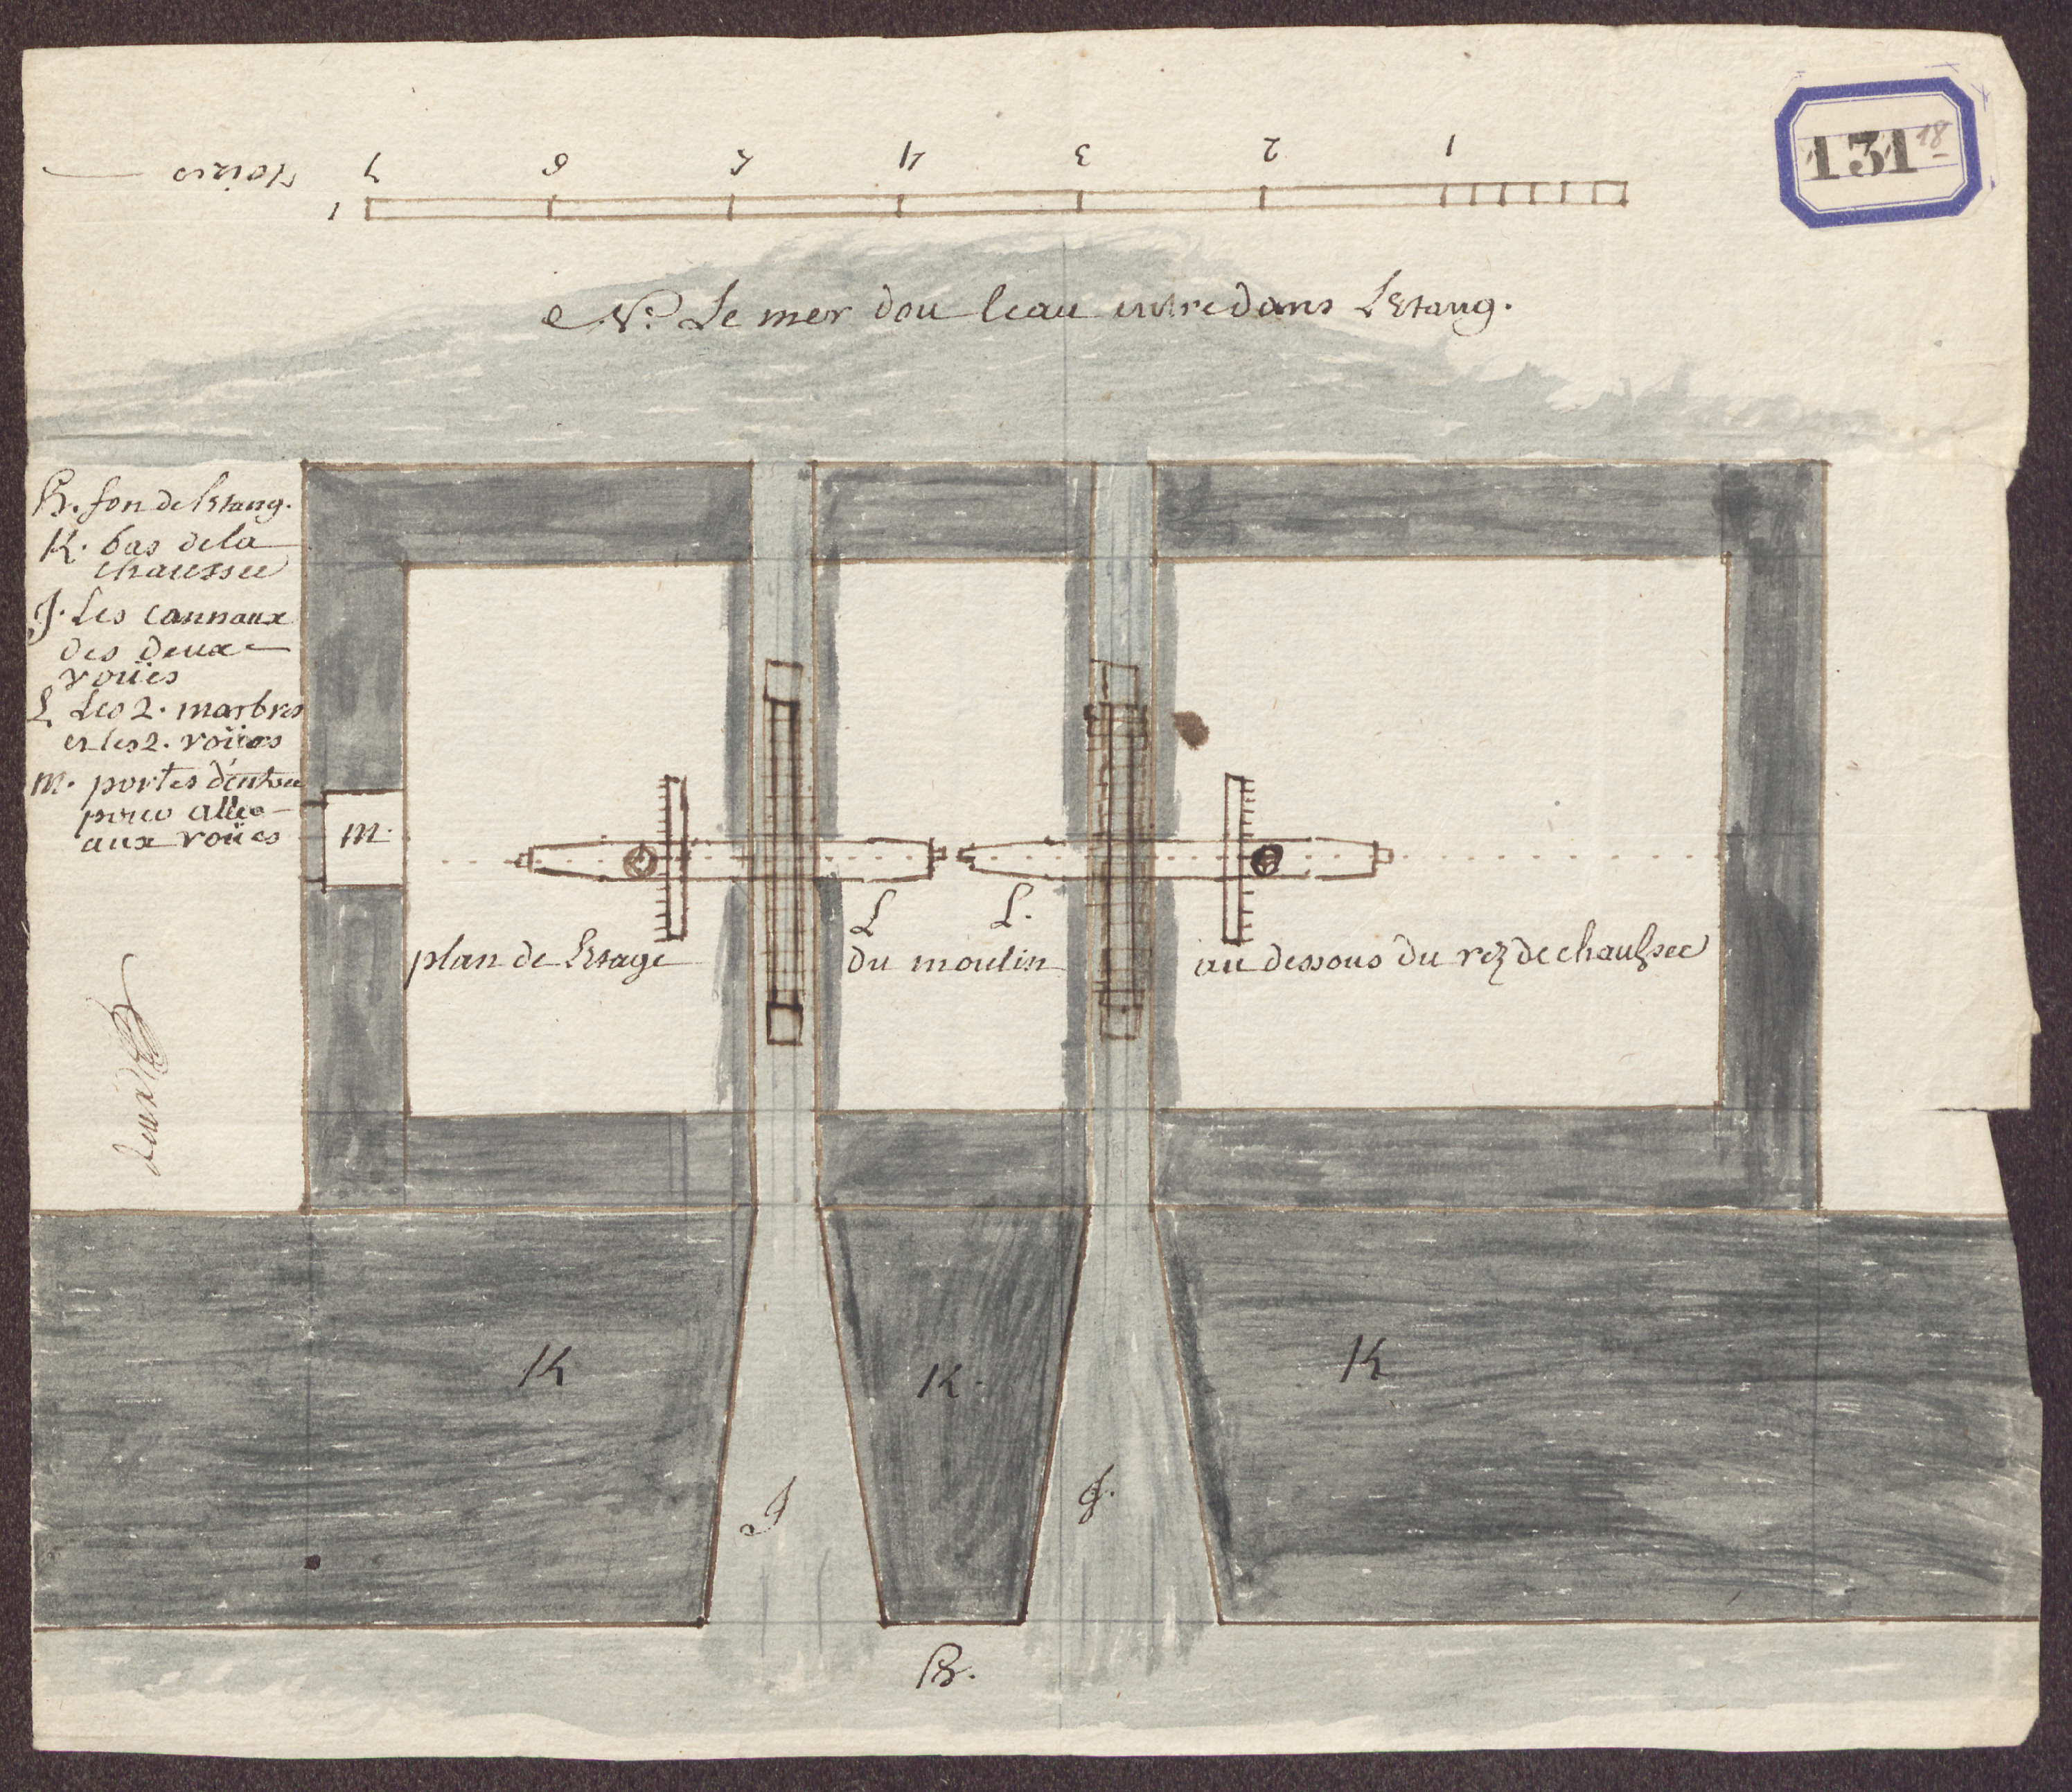 131 18
1 2 3 4 5 6 7 Toises
1
N. Le mer dou leau entre dans Letang.
H. fon de letang.
K. bas de la
chaussee
J. Les cannaux
des deux
roües
L Les 2. marbres
et les 2. roües
m. portes d'entree
pour aller
aux roües
m.
L
L.
plan de letage
du moulin
au dessous du rez de chaussee
K
K.
K
J
J.
H.